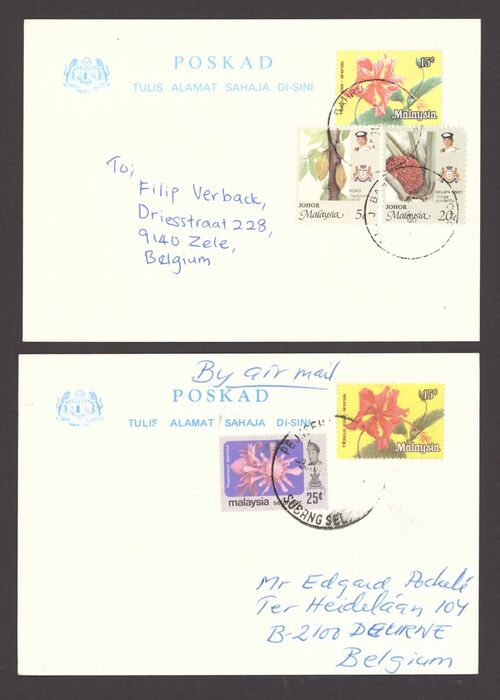 POSKAD
TULIS ALAMAT SAHAJA DI-SINI
15¢
Malaysia
KOKO
JOHOR
Malaysia
5¢
KELAPA SAWIT
JOHOR
Malaysia
20¢
To;
Filip Verback,
Driesstraat 228,
9140 Zele,
Belgium
By air mail
POSKAD
TULIS ALAMAT SAHAJA DI-SINI
15¢
Malaysia
malaysia
25¢
SUBANG SEL
Mr Edgard Pockelé
Ter Heideláan 104
B-2100 DEURNE
Belgium